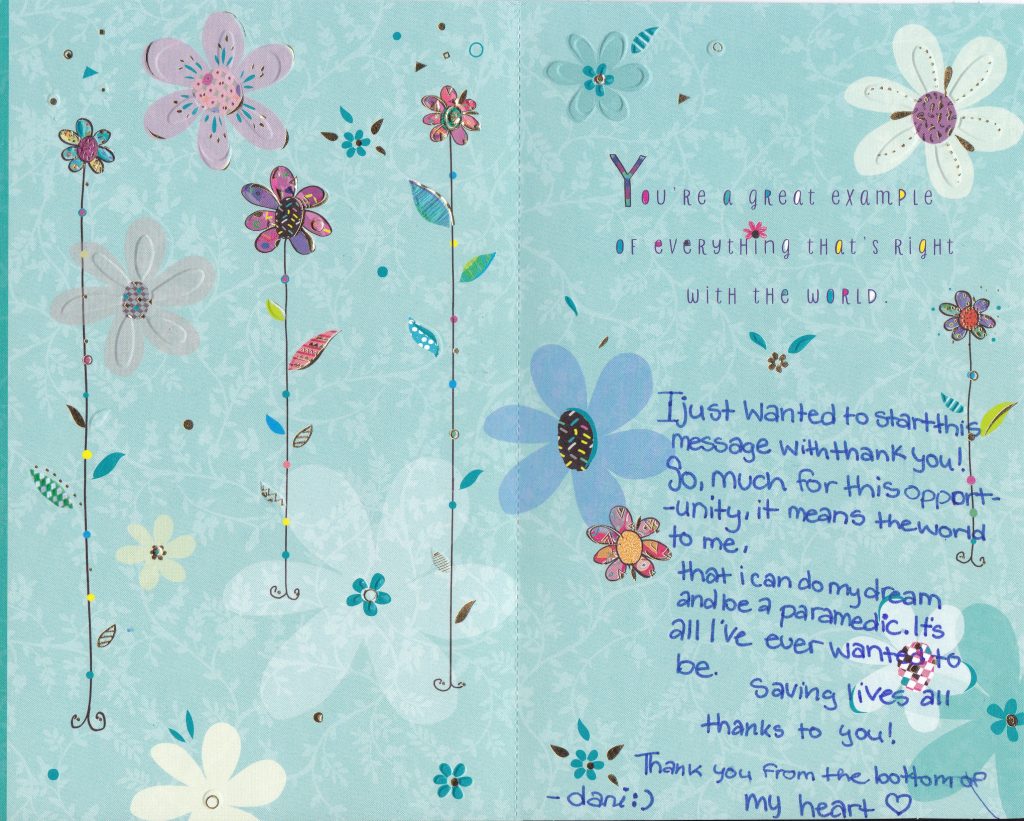 You're a great example
of everything that's right
with the world.
I just wanted to start this
message with thank you!
So, much for this opport-
-unity, it means the world
to me,
that i can do my dream
and be a paramedic. It's
all I've ever wanted to
be.
Saving lives all
thanks to you!
Thank you from the bottom of
my heart ♡
- dani:)